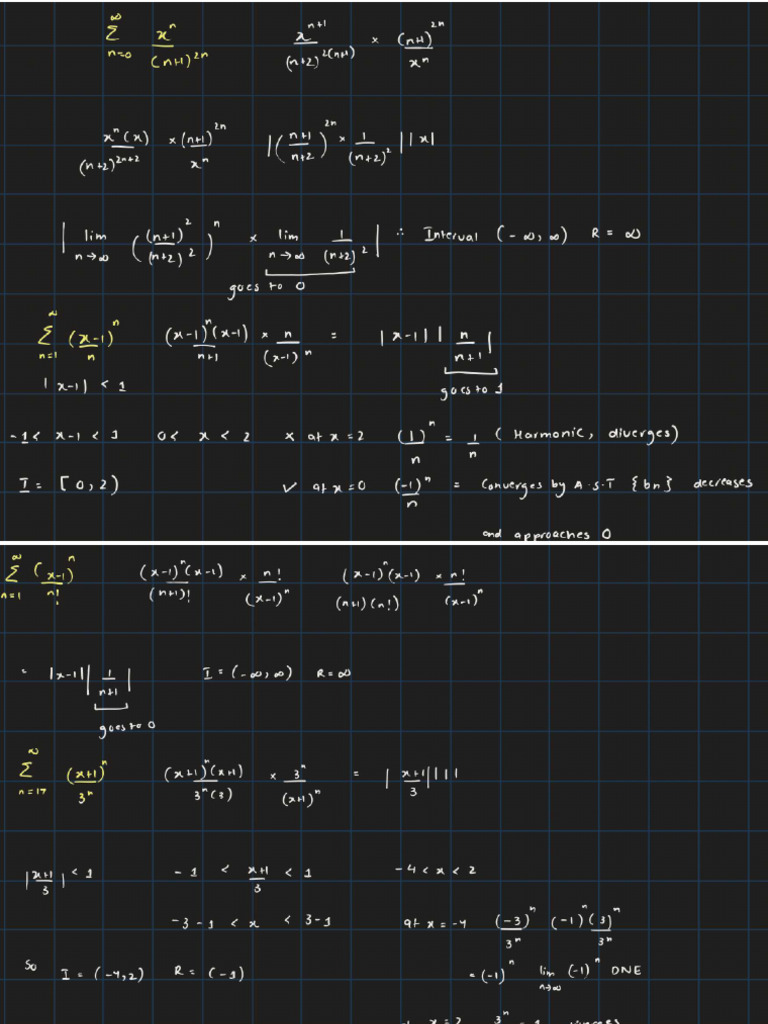 ∞ Σ n=0 xⁿ/(n+1)²ⁿ    xⁿ⁺¹/(n+2)²⁽ⁿ⁺¹⁾ × (n+1)²ⁿ/xⁿ
xⁿ(x)/(n+2)²ⁿ⁺² × (n+1)²ⁿ/xⁿ    |((n+1)/(n+2))²ⁿ × 1/(n+2)²||x|
| lim n→∞ ((n+1)²/(n+2)²)ⁿ × lim n→∞ 1/(n+2)² | ∴ Interval (-∞, ∞) R = ∞
goes to 0
∞ Σ n=1 (x-1)ⁿ/n    (x-1)ⁿ(x-1)/n+1 × n/(x-1)ⁿ = |x-1| |n/n+1|
|x-1| < 1    goes to 1
-1 < x-1 < 1    0 < x < 2    × at x=2 (1)ⁿ/n = 1/n (Harmonic, diverges)
I = [0,2)    ✓ at x=0 (-1)ⁿ/n = Converges by A.S.T {bn} decreases
and approaches 0
∞ Σ n=1 (x-1)ⁿ/n!    (x-1)ⁿ(x-1)/(n+1)! × n!/(x-1)ⁿ    (x-1)ⁿ(x-1)/(n+1)(n!) × n!/(x-1)ⁿ
= |x-1| |1/n+1|    I = (-∞, ∞) R = ∞
goes to 0
∞ Σ n=17 (x+1)ⁿ/3ⁿ    (x+1)ⁿ(x+1)/3ⁿ(3) × 3ⁿ/(x+1)ⁿ = |x+1/3||1|
|x+1/3| < 1    -1 < x+1/3 < 1    -4 < x < 2
-3-1 < x < 3-1    at x=-4 (-3)ⁿ/3ⁿ (-1)ⁿ(3)ⁿ/3ⁿ
So I = (-4,2) R = (-3)    = (-1)ⁿ lim n→∞ (-1)ⁿ DNE